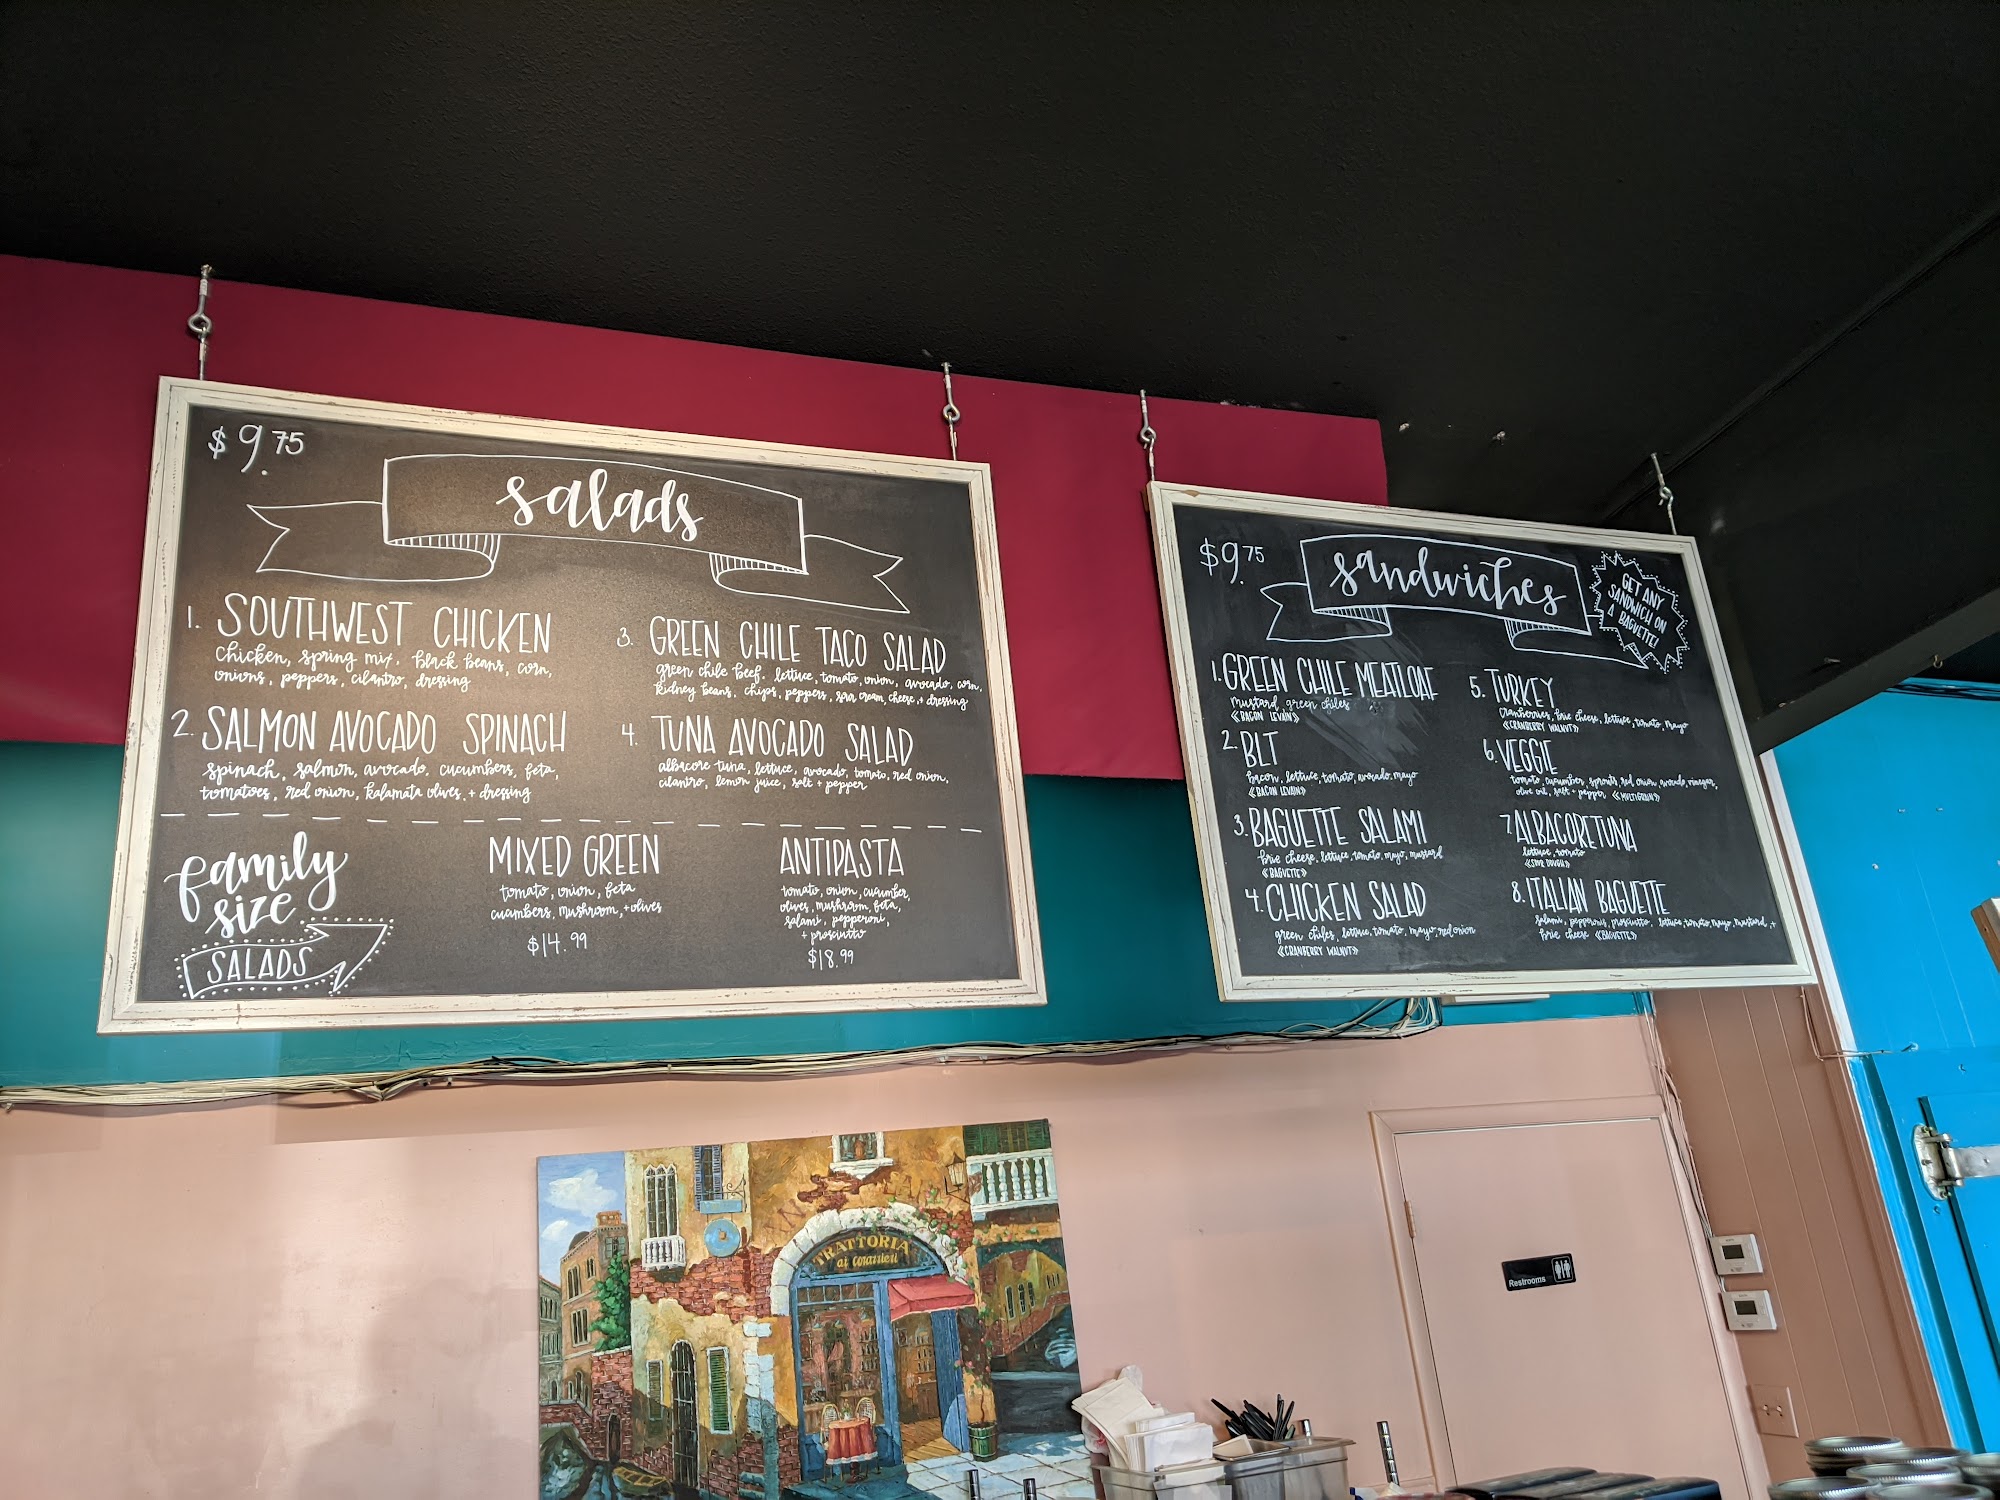 $9.75
salads
1. SOUTHWEST CHICKEN
chicken, spring mix, black beans, corn,
onions, peppers, cilantro, dressing
2. SALMON AVOCADO SPINACH
spinach, salmon, avocado, cucumbers, feta,
tomatoes, red onion, kalamata olives, + dressing
3. GREEN CHILE TACO SALAD
green chile beef, lettuce, tomato, onion, avocado, corn,
kidney beans, chips, peppers, sour cream, cheese, + dressing
4. TUNA AVOCADO SALAD
albacore tuna, lettuce, avocado, tomato, red onion,
cilantro, lemon juice, salt + pepper
family
size
SALADS
MIXED GREEN
tomato, onion, feta
cucumbers, mushroom, + olives
$14.99
ANTIPASTA
tomato, onion, cucumber,
olives, mushroom, feta,
salami, pepperoni,
+ prosciutto
$18.99
$9.75
sandwiches
GET ANY
SANDWICH ON
A BAGUETTE!
1. GREEN CHILE MEATLOAF
mustard, green chiles
«BACON LEVAIN»
2. BLT
bacon, lettuce, tomato, avocado, mayo
«BACON LEVAIN»
3. BAGUETTE SALAMI
brie cheese, lettuce, tomato, mayo, mustard
«BAGUETTE»
4. CHICKEN SALAD
green chiles, lettuce, tomato, mayo, red onion
«CRANBERRY WALNUT»
5. TURKEY
cranberries, brie cheese, lettuce, tomato, mayo
«CRANBERRY WALNUT»
6. VEGGIE
tomato, cucumber, sprouts, red onion, avocado, vinegar,
olive oil, salt + pepper «MULTIGRAIN»
7. ALBACORE TUNA
lettuce, tomato
«SOUR DOUGH»
8. ITALIAN BAGUETTE
salami, pepperoni, prosciutto, lettuce, tomato, mayo, mustard, +
brie cheese «BAGUETTE»
TRATTORIA
Restrooms